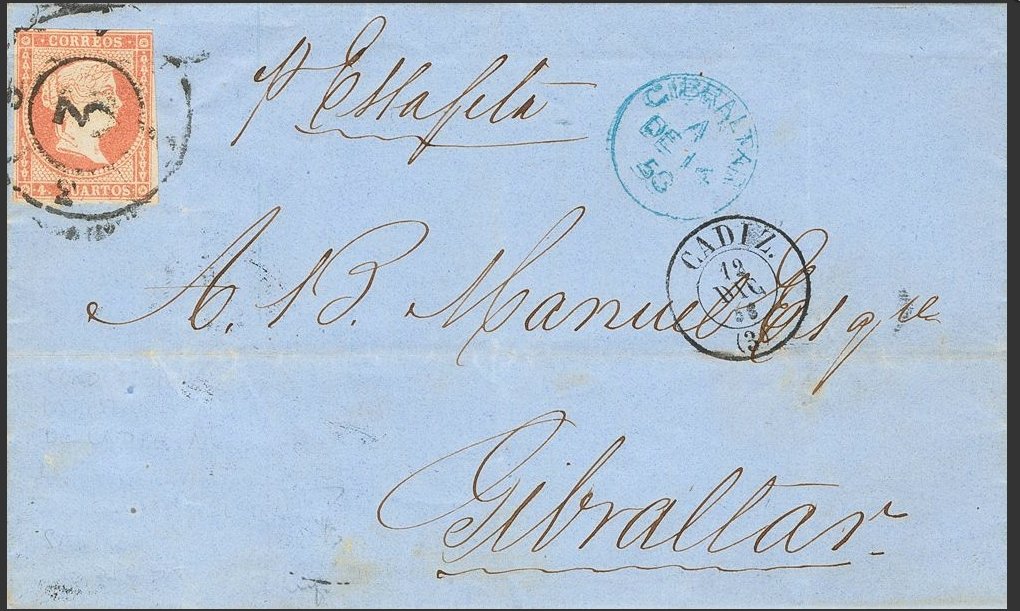 CORREOS
3
4 CUARTOS
p. Estafeta
GIBRALTAR
A
DE 14
58
CADIZ.
12
DIC
58
(3)
A. B. Manuel Esqre
Gibraltar